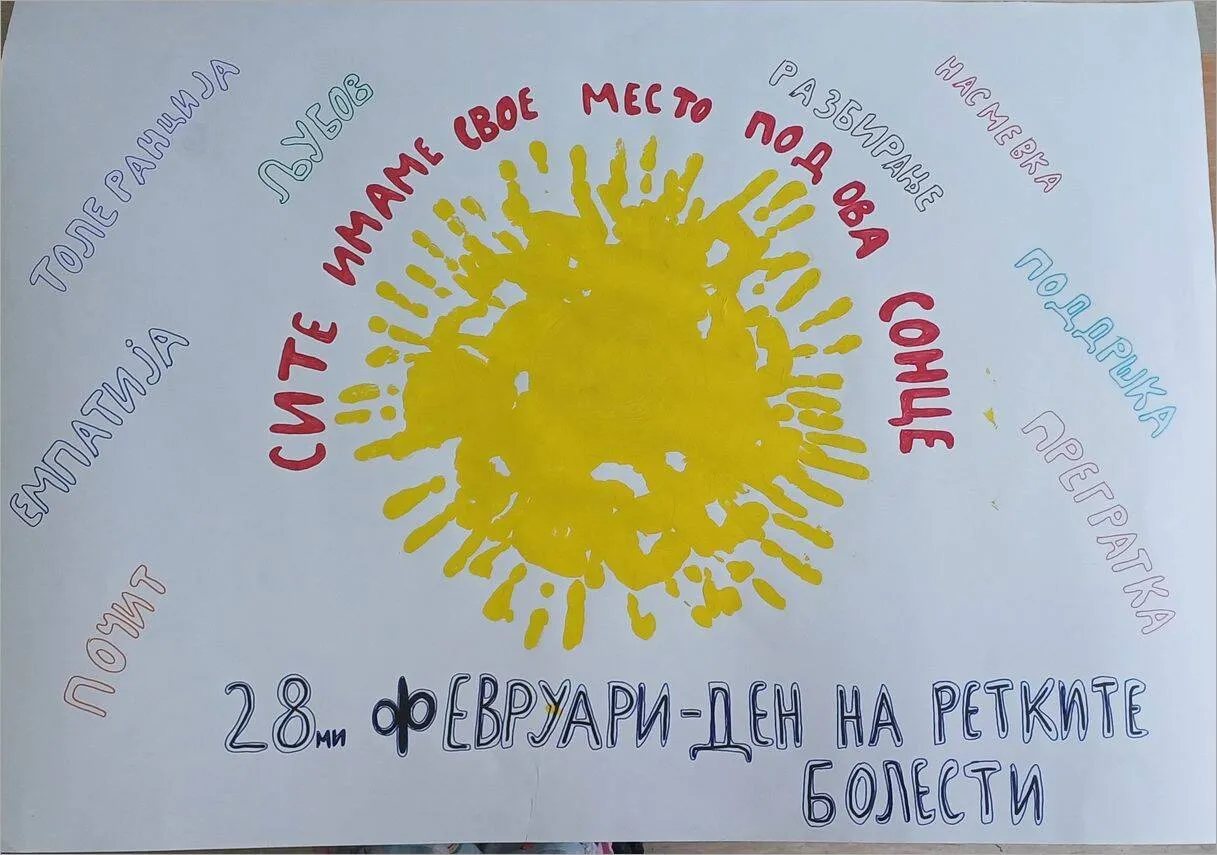 ТОЛЕРАНЦИЈА
ЉУБОВ
СИТЕ ИМАМЕ СВОЕ МЕСТО ПОД ОВА СОНЦЕ
РАЗБИРАЊЕ
НАСМЕВКА
ЕМПАТИЈА
ПОДДРШКА
ПОЧИТ
ПРЕГРАТКА
28ми ФЕВРУАРИ-ДЕН НА РЕТКИТЕ
БОЛЕСТИ